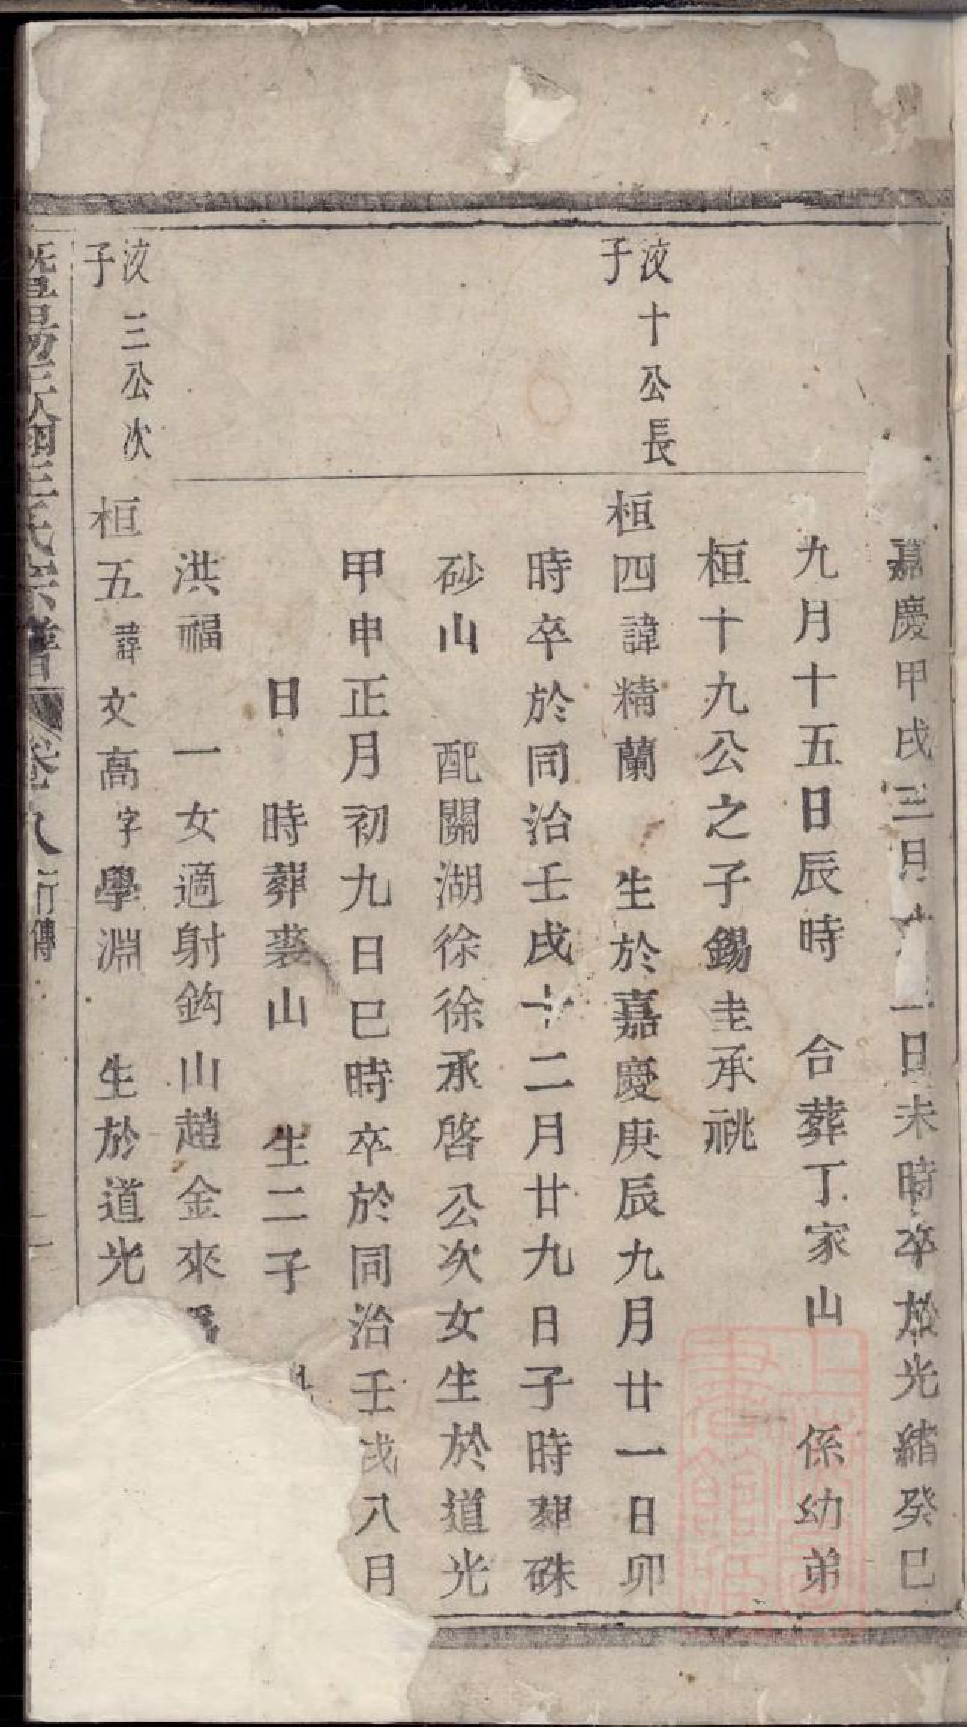 嘉慶甲戌三月 日未時卒於光緒癸巳
九月十五日辰時 合葬丁家山 係幼弟
桓十九公之子錫圭承祧
汷十公長
子
桓四諱精蘭 生於嘉慶庚辰九月廿一日卯
時卒於同治壬戌十二月廿九日子時葬硃
砂山 配關湖徐徐承啓公次女生於道光
甲申正月初九日巳時卒於同治壬戌八月
日 時葬裘山 生二子
洪福 一女適射鈎山趙金來
汷三公次
子
桓五諱文高字學淵 生於道光
暨陽 氏宗譜 卷八 行傳